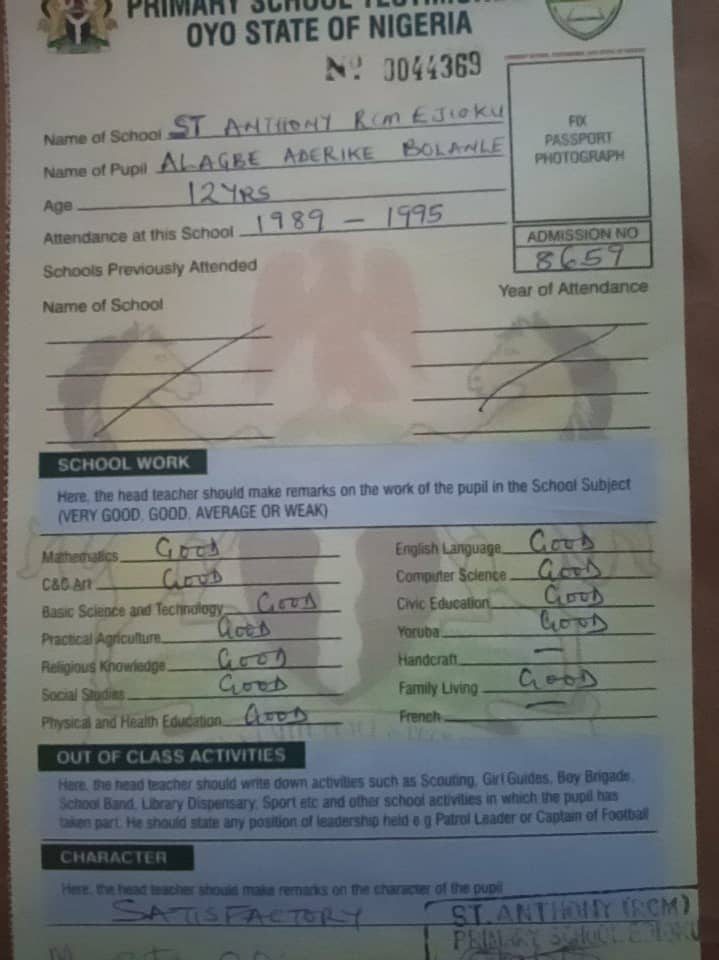 PRIMARY SCHOOL
OYO STATE OF NIGERIA
Nº 0044369
FIX
PASSPORT
PHOTOGRAPH
Name of School ST ANTHONY RCM EJIOKU
Name of Pupil ALAGBE ADERIKE BOLANLE
Age 12YRS
Attendance at this School 1989 - 1995
ADMISSION NO
8659
Schools Previously Attended
Name of School Year of Attendance
SCHOOL WORK
Here, the head teacher should make remarks on the work of the pupil in the School Subject
(VERY GOOD, GOOD, AVERAGE OR WEAK)
Mathematics GOOD English Language GOOD
C&C Art GOOD Computer Science GOOD
Basic Science and Technology GOOD Civic Education GOOD
Practical Agriculture GOOD Yoruba GOOD
Religious Knowledge GOOD Handcraft —
Social Studies GOOD Family Living GOOD
Physical and Health Education GOOD French —
OUT OF CLASS ACTIVITIES
Here, the head teacher should write down activities such as Scouting, Girl Guides, Boy Brigade,
School Band, Library Dispensary, Sport etc and other school activities in which the pupil has
taken part. He should state any position of leadership held e.g Patrol Leader or Captain of Football
CHARACTER
Here, the head teacher should make remarks on the character of the pupil
SATISFACTORY
ST. ANTHONY (RCM)
PRIMARY SCHOOL EJIOKU